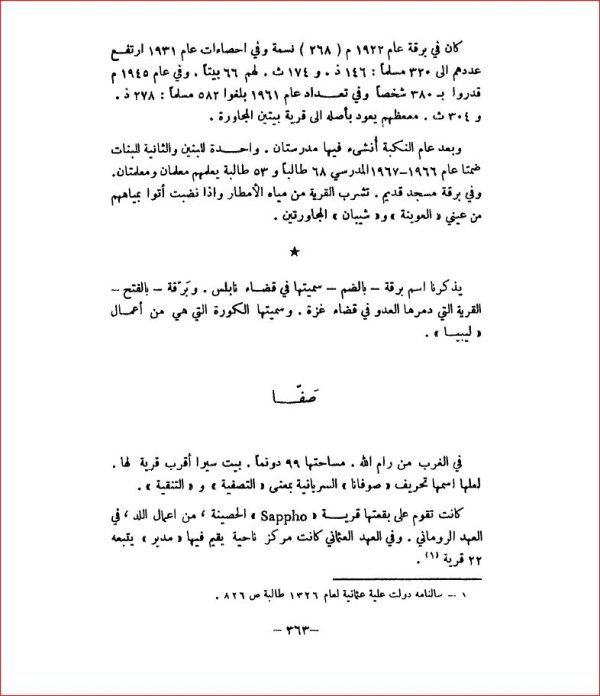 كان في برقة عام ١٩٢٢ م ( ٢٦٨ ) نسمة وفي احصاءات عام ١٩٣١ ارتفع
عددهم الى ٣٢٠ مسلماً : ١٤٦ ذ . و ١٧٤ ث . لهم ٦٦ بيتاً . وفي عام ١٩٤٥ م
قدروا بـ ٣٨٠ شخصاً وفي تعداد عام ١٩٦١ بلغوا ٥٨٢ مسلماً : ٢٧٨ ذ .
و ٣٠٤ ث . معظهم يعود بأصله الى قرية بيتين المجاورة .
وبعد عام النكبة أُنشىء فيها مدرستان . واحدة للبنين والثانية للبنات
ضمتا عام ١٩٦٦–١٩٦٧ المدرسي ٦٨ طالباً و ٥٣ طالبة يعلمهم معلمان ومعلمتان.
وفي برقة مسجد قديم . تشرب القرية من مياه الأمطار واذا نضبت أتوا بمياههم
من عيني « العوينة » و« شيبان » المجاورتين .
★
يذكرنا اسم برقة – بالضم – سميتها في قضاء نابلس . وبَرْقة – بالفتح –
القرية التي دمرها العدو في قضاء غزة . وسميتها الكورة التي هي من أعمال
« ليبيا » .
صَفّا
في الغرب من رام الله . مساحتها ٩٩ دونماً . بيت سيرا أقرب قرية لها .
لعلها اسمها تحريف « صوفانا » السريانية بمعنى « التصفية » و « التنقية » .
كانت تقوم على بقعتها قرية « Sappho » الحصينة ، من اعمال اللد ، في
العهد الروماني . وفي العهد العثماني كانت مركز ناحية يقيم فيها « مدير » يتبعه
٢٢ قرية (١) .
١ – سالنامه دولت علية عثمانية لعام ١٣٢٦ طالبة ص ٨٢٦ .
–٣٦٣–